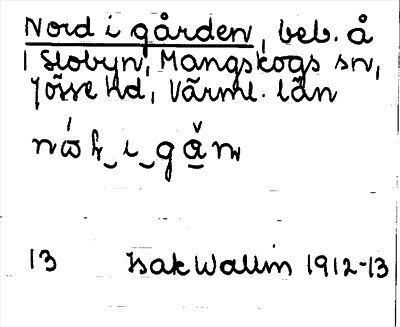 Nord i gården, beb. å
1 Slobyn, Mangskogs sn,
Jösse hd, Värml. län
13 Isak Wallin 1912-13